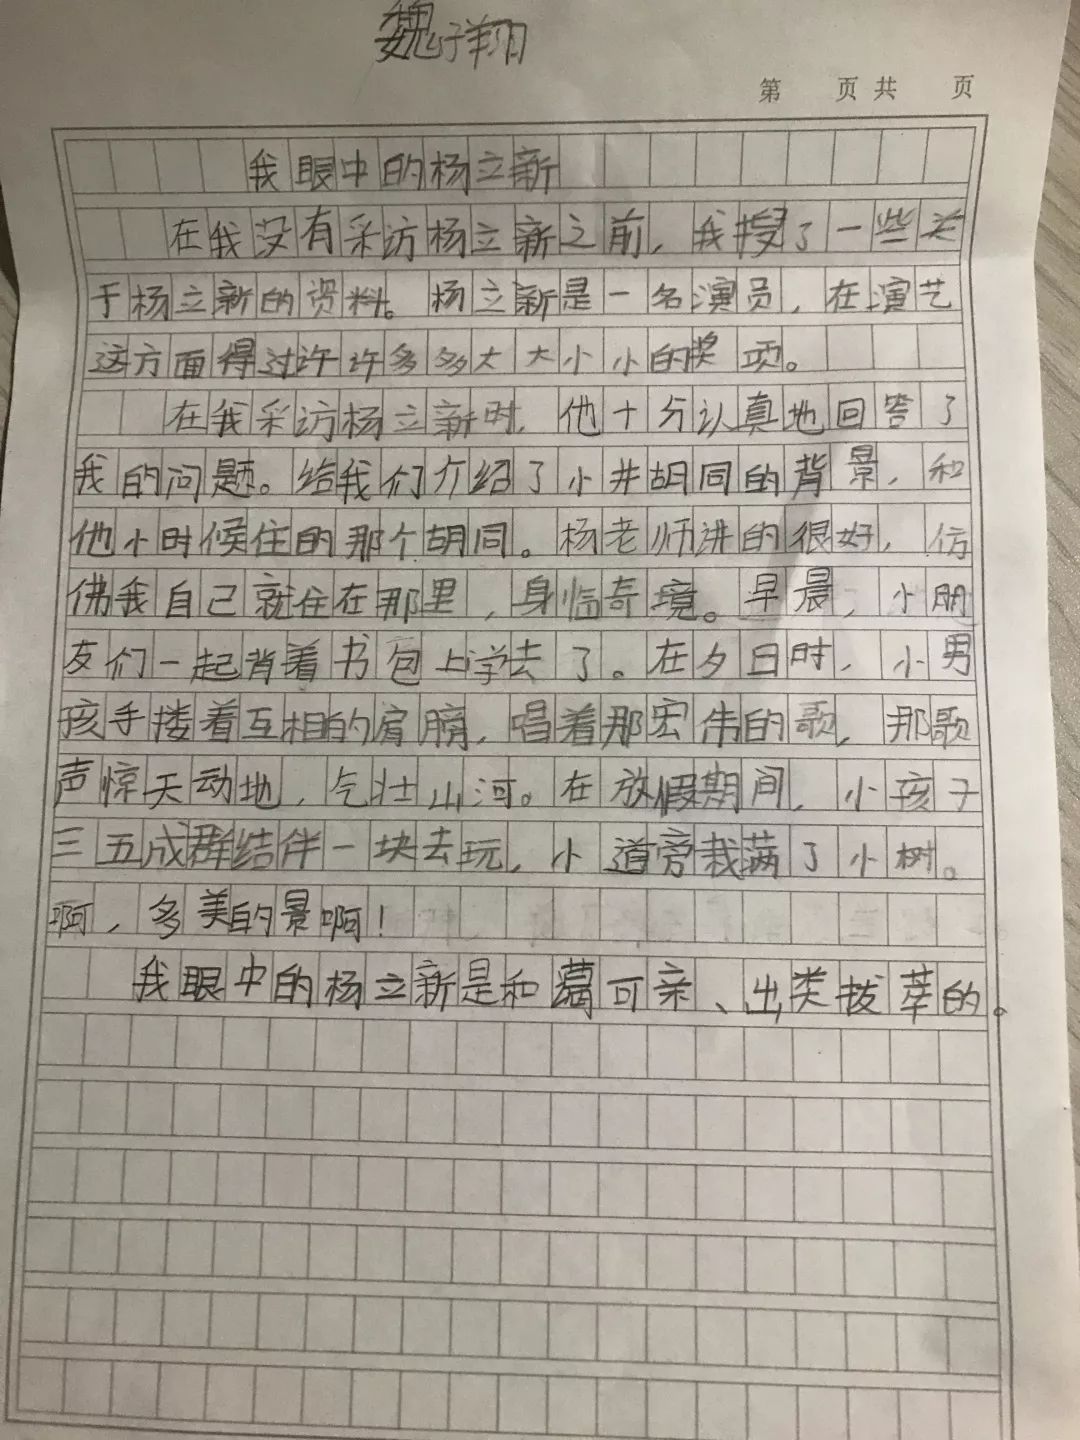 魏子翔
第 页 共 页
我眼中的杨立新
在我没有采访杨立新之前，我搜了一些关
于杨立新的资料。杨立新是一名演员，在演艺
这方面得过许许多多大大小小的奖项。
在我采访杨立新时，他十分认真地回答了
我的问题。给我们介绍了小井胡同的背景，和
他小时候住的那个胡同。杨老师讲的很好，仿
佛我自己就住在那里，身临奇境。早晨，小朋
友们一起背着书包上学去了。在夕日时，小男
孩手搂着互相的肩膀，唱着那宏伟的歌，那歌
声惊天动地，气壮山河。在放假期间，小孩子
三五成群结伴一块去玩，小道旁栽满了小树。
啊，多美的景啊！
我眼中的杨立新是和蔼可亲、出类拔萃的。